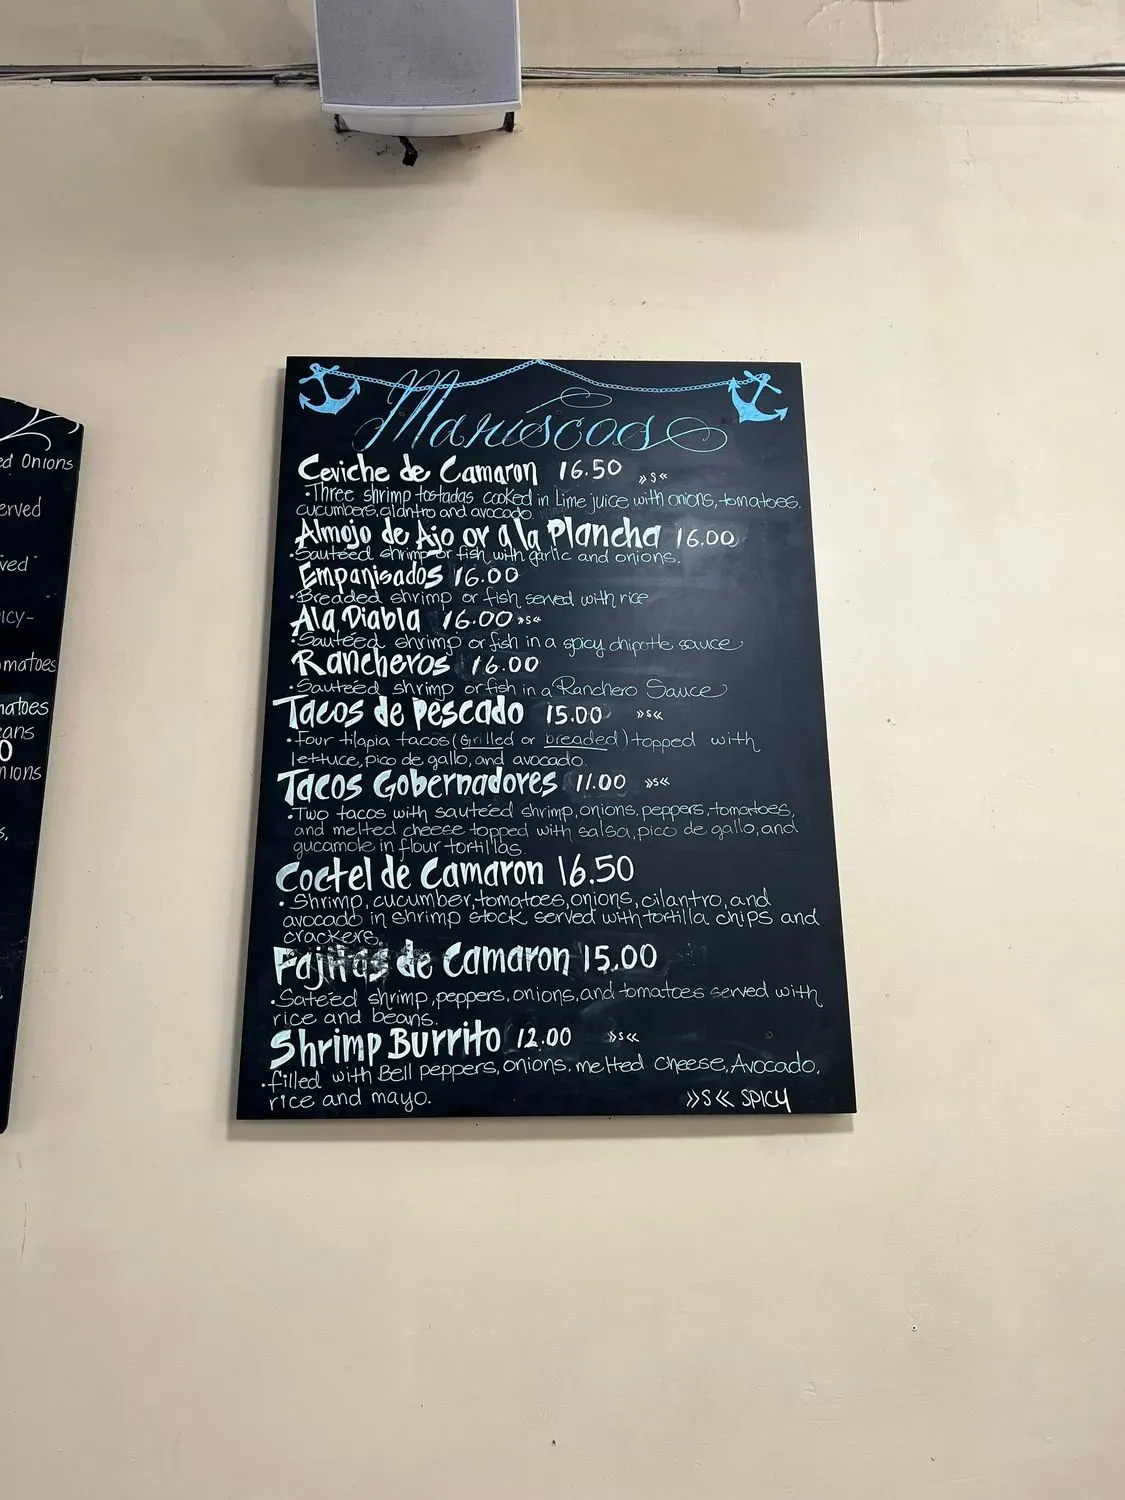 ed Onions
erved
ved
ICY-
omatoes
matoes
eans
O
nions
s,
Mariscos
Ceviche de Camaron 16.50 »S«
•Three shrimp tostadas cooked in Lime juice with onions, tomatoes,
cucumbers, cilantro and avocado.
Almojo de Ajo or a la Plancha 16.00
•Sautéed shrimp or fish with garlic and onions.
Empanisados 16.00
•Breaded shrimp or fish served with rice
Ala Diabla 16.00 »S«
•Sautéed shrimp or fish in a spicy chipotle sauce
Rancheros 16.00
•Sautéed shrimp or fish in a Ranchero Sauce
Tacos de Pescado 15.00 »S«
•Four tilapia tacos (Grilled or breaded) topped with
lettuce, pico de gallo, and avocado.
Tacos Gobernadores 11.00 »S«
•Two tacos with sautéed shrimp, onions, peppers, tomatoes,
and melted cheese topped with salsa, pico de gallo, and
gucamole in flour tortillas.
Coctel de Camaron 16.50
•Shrimp, cucumber, tomatoes, onions, cilantro, and
avocado in shrimp stock served with tortilla chips and
crackers.
Fajitas de Camaron 15.00
•Satéed shrimp, peppers, onions, and tomatoes served with
rice and beans.
Shrimp Burrito 12.00 »S«
•filled with Bell peppers, onions, melted cheese, Avocado,
rice and mayo.
»S« SPICY